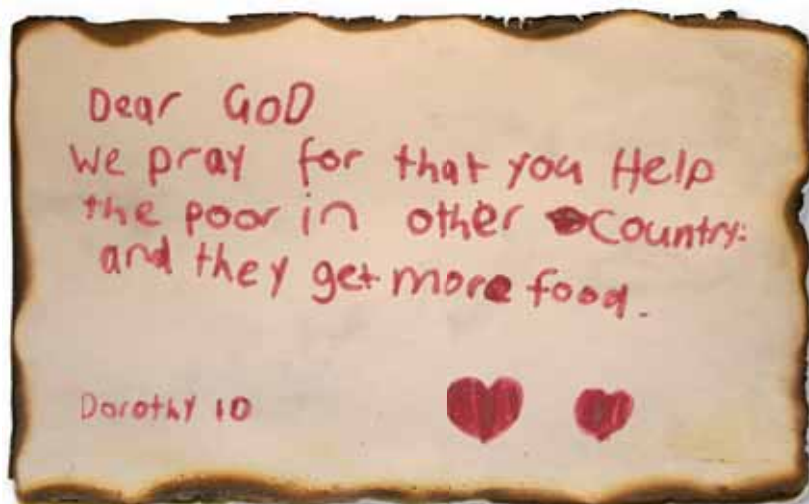 Dear GoD
We pray for that you Help
the poor in other Country:
and they get more food.
Dorothy 10